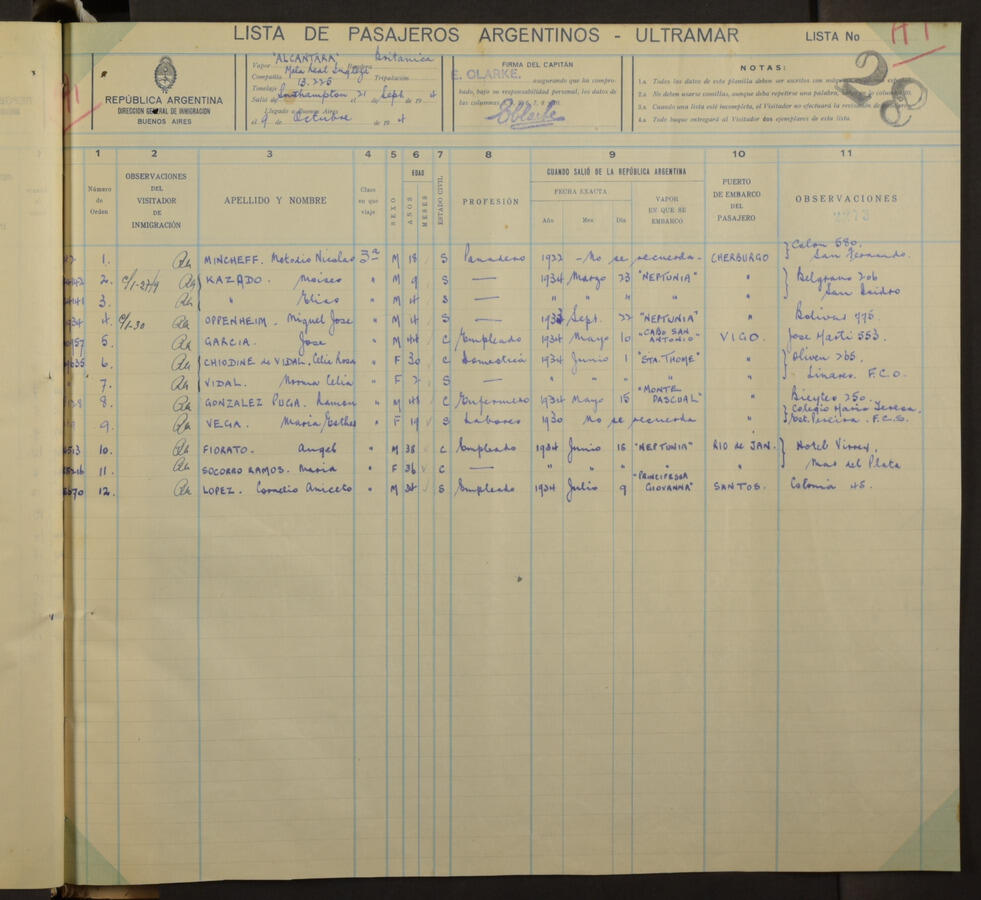 LISTA DE PASAJEROS ARGENTINOS - ULTRAMAR
LISTA No A1
28
REPÚBLICA ARGENTINA
DIRECCIÓN GENERAL DE INMIGRACIÓN
BUENOS AIRES
Vapor "ALCANTARA" Bandera Britanica
Compañía Mala Real Inglesa Tripulación
Tonelaje 13.225
Salió de Southampton 21 de Sept de 19 4
Llegado a Buenos Aires
el 9 de Octubre de 19 4
FIRMA DEL CAPITÁN
E. CLARKE. asegurando que ha compro-
bado, bajo su responsabilidad personal, los datos de
las columnas
EClarke
NOTAS:
1.a Todos los datos de esta planilla deben ser escritos con
2.a No deben usarse comillas, aunque deba repetirse una palabra,
3.a Cuando una lista esté incompleta, el Visitador no efectuará la
4.a Todo buque entregará al Visitador dos ejemplares de esta lista.
1 2 3 4 5 6 7 8 9 10 11
Número de Orden
OBSERVACIONES DEL VISITADOR DE INMIGRACIÓN
APELLIDO Y NOMBRE
Clase en que viaje
SEXO
EDAD
AÑOS
MESES
ESTADO CIVIL
PROFESIÓN
CUANDO SALIÓ DE LA REPÚBLICA ARGENTINA
FECHA EXACTA
Año Mes Día
VAPOR EN QUE SE EMBARCÓ
PUERTO DE EMBARCO DEL PASAJERO
OBSERVACIONES
1. MINCHEFF. Metodio Nicolas 3a M 18 S Panadero 1922 - No se recuerda - CHERBURGO Colon 580. San Fernando.
2. C/1-27/9 KAZADO. Moises " M 9 S — 1934 Marzo 23 "NEPTUNIA" " Belgrano 206
3. " Elias " M 4 S — " " " " " San Isidro
4. C/1-30 OPPENHEIM. Miguel Jose " M 14 S — 1933 Sept. 22 "NEPTUNIA" " Bolivar 775.
5. GARCIA. Jose " M 44 C Empleado 1934 Mayo 10 "CABO SAN ANTONIO" VIGO. Jose Marti 553.
6. CHIODINE de VIDAL. Celia Rosa " F 30 C Domestica 1934 Junio 1 "STA. THOME" " Oliden 265.
7. VIDAL. Norma Celia " F 2 S — " " " " " Liniers. F.C.O.
8. GONZALEZ PUGA. Ramon " M 45 C Enfermero 1934 Mayo 15 "MONTE PASCUAL" " 250.
9. VEGA. Maria Esther " F 19 S Labores 1930 No se recuerda " Colegio Maria Teresa. Est. Pereira. F.C.S.
10. FIORATO. Angel " M 38 C Empleado 1934 Junio 15 "NEPTUNIA" RIO de JAN. Hotel Virrey,
11. SOCORRO RAMOS. Maria " F 36 C — " " " " " Mar del Plata
12. LOPEZ. Cornelio Aniceto " M 34 S Empleado 1934 Julio 9 "PRINCIPESSA GIOVANNA" SANTOS. Colonia 45.